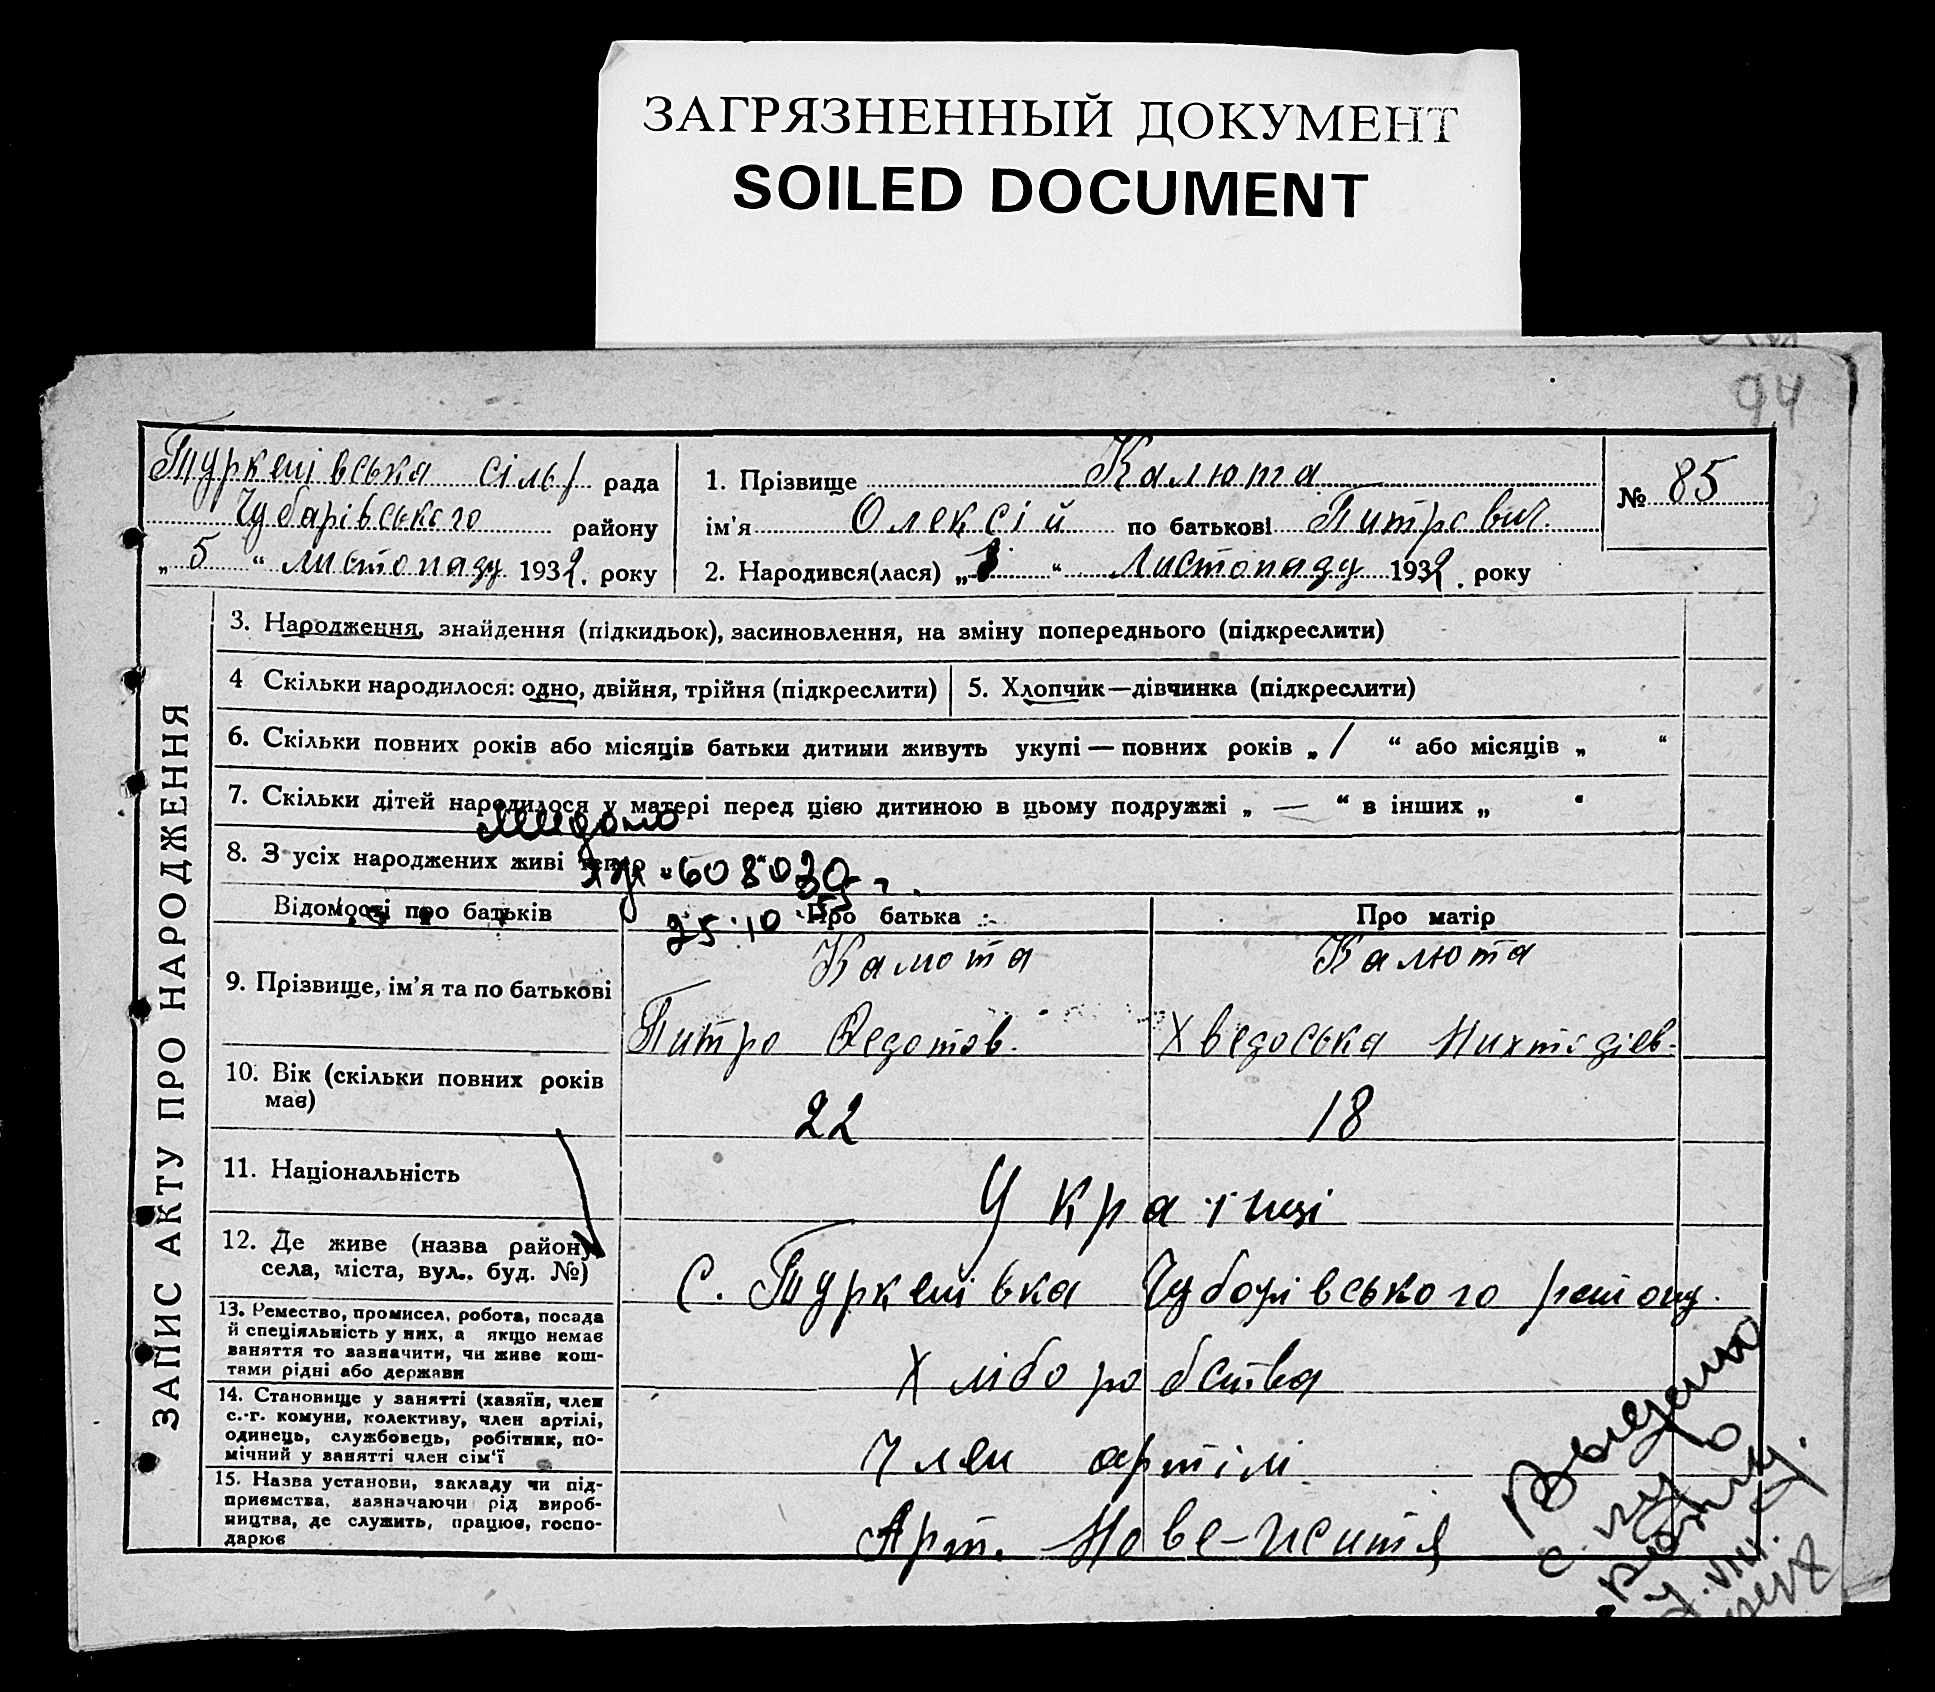 ЗАГРЯЗНЕННЫЙ ДОКУМЕНТ
SOILED DOCUMENT
94
Туркенівська сіль/ рада
Чубарівського району
„ 5 “ листопаду 1932. року
1. Прізвище Калюта
ім'я Олексій по батькові Питрович.
2. Народився(лася) „ “ Листопаду 1932. року
№ 85
ЗАПИС АКТУ ПРО НАРОДЖЕННЯ
3. Народження, знайдення (підкидьок), засиновлення, на зміну попереднього (підкреслити)
4 Скільки народилося: одно, двійня, трійня (підкреслити)
5. Хлопчик—дівчинка (підкреслити)
6. Скільки повних років або місяців батьки дитини живуть укупі — повних років „ / “ або місяців „ “
7. Скільки дітей народилося у матері перед цією дитиною в цьому подружжі „ — “ в інших „ “
8. З усіх народжених живі тепер
608020
25.10
Відомості про батьків
Про батька
Про матір
9. Прізвище, ім'я та по батькові
Калюта
Питро Федотов.
Калюта
Хведоська
10. Вік (скільки повних років має)
22
18
11. Національність
Українці
12. Де живе (назва району, села, міста, вул.. буд. №)
С. Туркенівка Чубарівського району.
13. Ремество, промисел, робота, посада
й спеціяльність у них, а якщо немає
заняття то зазначити, чи живе кош-
тами рідні або держави
Хліборобства
14. Становище у занятті (хазяїн, член
с.-г. комуни, колективу, член артілі,
одинець, службовець, робітник, по-
мічний у занятті член сім'ї
Член артілі
15. Назва установи, закладу чи під-
приємства, зазначаючи рід вироб-
ництва, де служить, працює, госпо-
дарює
Арт. Нове-Життя